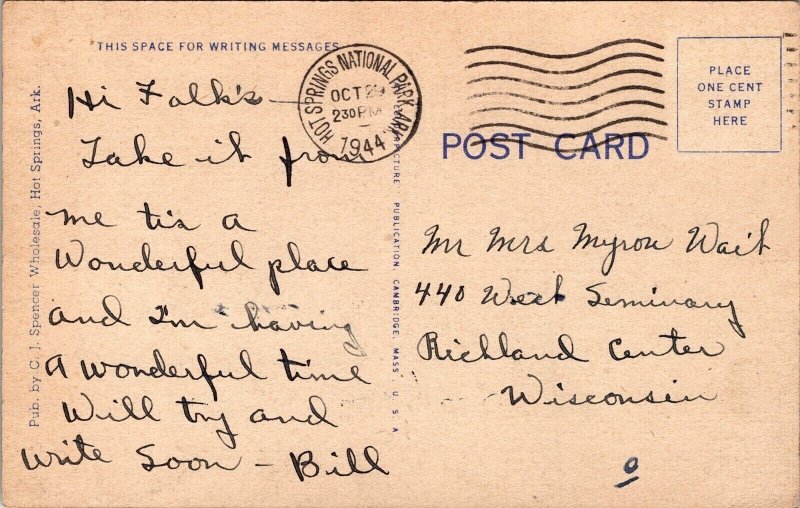 THIS SPACE FOR WRITING MESSAGES
Hi Folk's —
Take it from
me tis a
Wonderful place
and I'm having
A wonderful time
Will try and
write Soon – Bill
Pub. by C. J. Spencer Wholesale, Hot Springs, Ark.
HOT SPRINGS NATIONAL PARK, ARK.
OCT 29
2 30 PM
1944
PUBLICATION, CAMBRIDGE, MASS. U. S. A
POST CARD
PLACE
ONE CENT
STAMP
HERE
Mr Mrs Myron Wait
440 West Seminary
Richland Center
Wisconsin
0